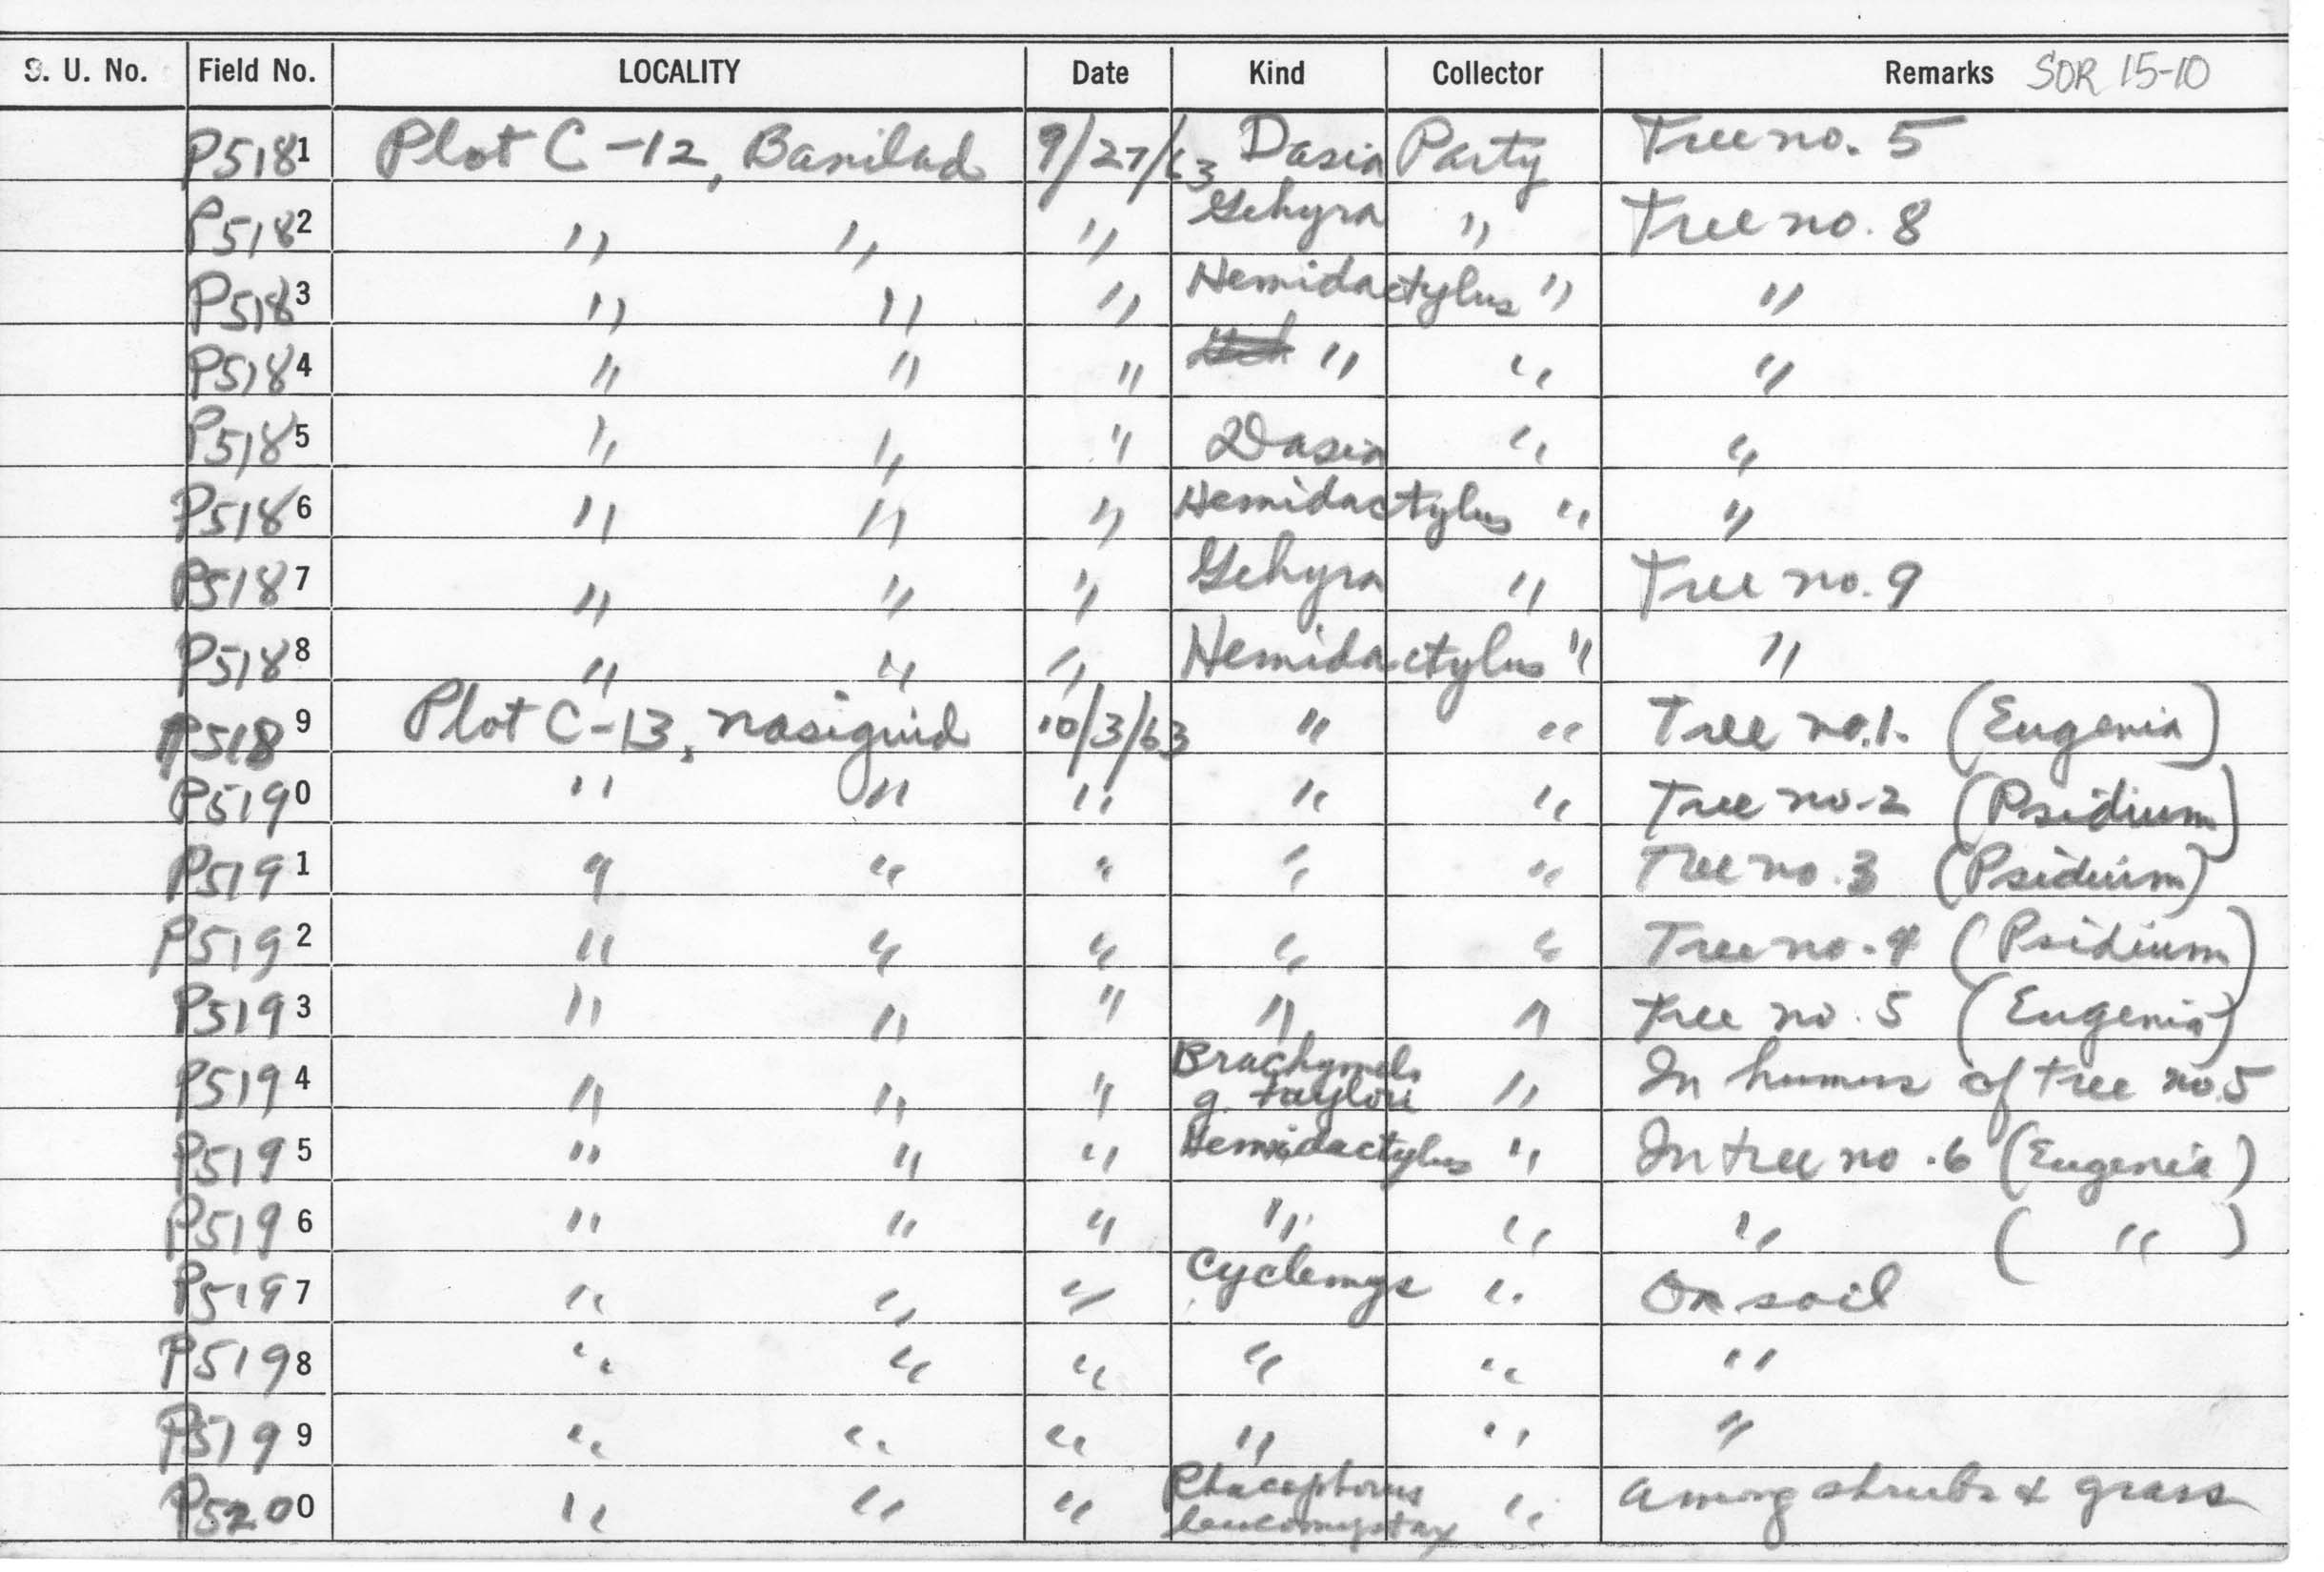 S. U. No. Field No. LOCALITY Date Kind Collector Remarks SOR 15-10
P5181 Plot C-12, Banilad 9/27/63 Dasia Party Tree no. 5
P5182 " " " Gehyra " Tree no. 8
P5183 " " " Hemidactylus " "
P5184 " " " " " "
P5185 " " " Dasia " "
P5186 " " " Hemidactylus " "
P5187 " " " Gehyra " Tree no. 9
P5188 " " " Hemidactylus " "
P5189 Plot C-13, Nasiguid 10/3/63 " " Tree no. 1. (Eugenia)
P5190 " " " " " Tree no. 2 (Psidium)
P5191 " " " " " Tree no. 3 (Psidium)
P5192 " " " " " Tree no. 4 (Psidium)
P5193 " " " " " Tree no. 5 (Eugenia)
P5194 " " " Brachymels g. taylori " In humus of tree no. 5
P5195 " " " Hemidactylus " In tree no. 6 (Eugenia)
P5196 " " " " " " ( " )
P5197 " " " Cyclemys " On soil
P5198 " " " " " "
P5199 " " " " " "
P5200 " " " Rhacophorus leucomystax " among shrubs & grass